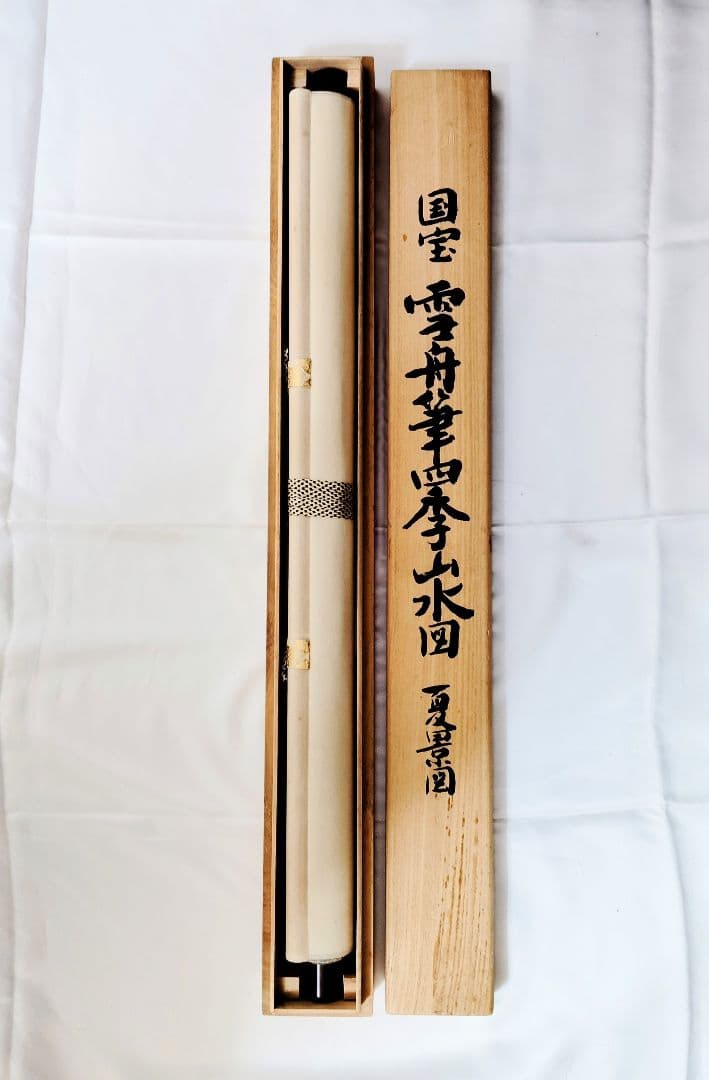 国宝 雪舟筆四季山水図 夏景図